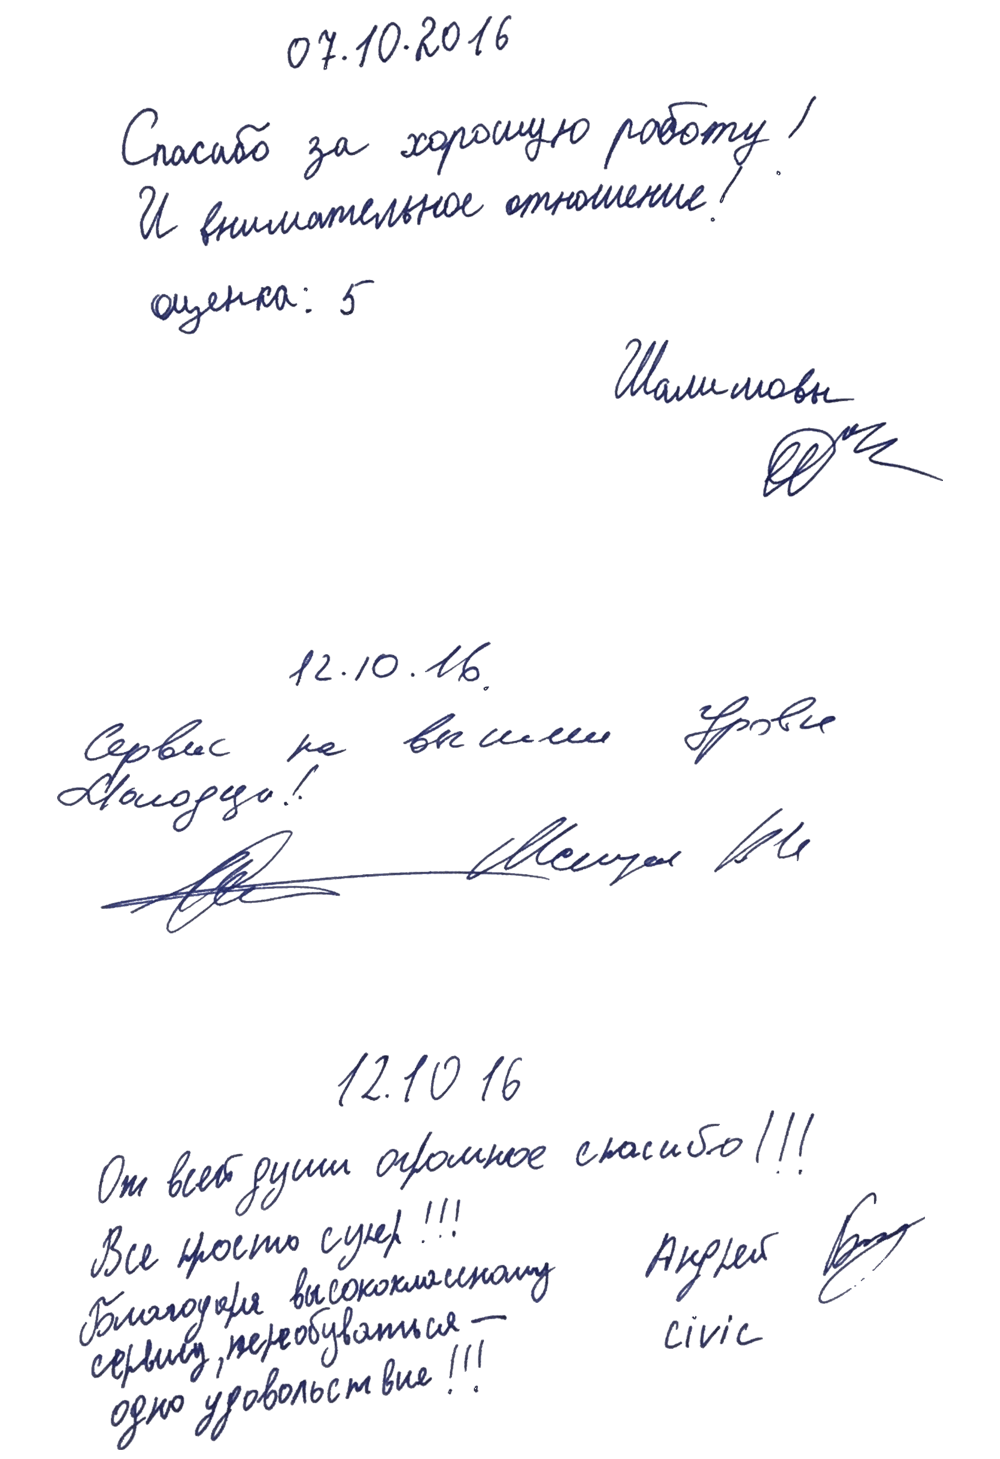 07.10.2016
Спасибо за хорошую работу!
И внимательное отношение!
оценка: 5
Шалимовы
12.10.16.
Сервис на высшем Уровне
Молодцы!
12.10 16
От всей души огромное спасибо!!!
Все просто супер!!!
Благодаря высококлассному
сервису, переобуваться –
одно удовольствие!!!
Андрей
civic